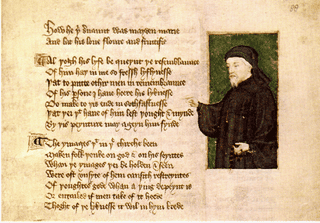 88
How he þi seruaunt was mayden marie
And lat his loue floure and fructifie
Al þogh his lyfe be queynt þe resemblaunce
Of him haþ in me so fressh lyflynesse
Þat to putte othir men in remembraunce
Of his persone I haue heere his lyknesse
Do make to þis ende in sothfastnesse
Þat þei þat haue of him lest þought & mynde
By þis peynture may ageyn him fynde
The ymages þat in þe chirche been
Maken folk þenke on god & on his seyntes
Whan þe ymages þei be holden & seen
Were oft vnsyte of hem causith restreyntes
Of þoughtes gode whan a þing depeynt is
Or entailed if men take of it heede
Thoght of þe lyknesse it wil in hym brede